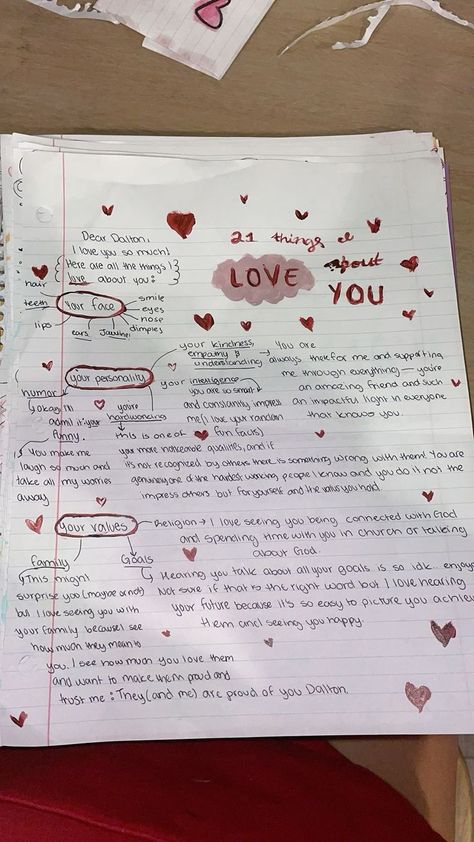 Dear Dalton,
I love you so much!
Here are all the things I
love about you:
21 things I
LOVE about
YOU
your face
hair
teeth
lips
ears
Jawline
dimples
nose
eyes
smile
your personality
your kindness,
empathy &
understanding → You are
always there for me and supporting
me through everything — you're
an amazing friend and such
an impactful light in everyone
that knows you.
your intelligence
you are so smart
and constantly impress
me (I love your random
fun facts)
humor
okay I'll
admit it your
funny.
You make me
laugh so much and
take all my worries
away
you're
hardworking
this is one of
your more noticeable qualities, and if
it's not recognized by others there is something wrong with them! You are
genuinely one of the hardest working people I know and you do it not the
impress others but for yourself and the values you hold.
your values
Religion → I love seeing you being connected with God
and spending time with you in church or talking
about God.
family
This might
surprise you (maybe or not)
but I love seeing you with
your family because I see
how much they mean to
you. I see how much you love them
and want to make them proud and
trust me: They (and me) are proud of you Dalton.
Goals
Hearing you talk about all your goals is so idk.. enjoy
Not sure if that is the right word but I love hearing
your future because it's so easy to picture you achie
them and seeing you happy.